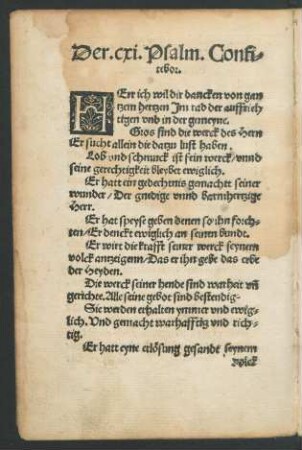 Der. cxi. Psalm. Confi-
tebor.
HErr ich wil dir dancken von gan
tzem hertzen Im rad der auffrich
tigen vnd in der gemeyne.
Gros sind die werck des Herrn
Er sucht allein die datzu lust haben.
Lob vnd schmuck ist sein werck/ vnnd
seine gerechtigkeit bleybet ewiglich.
Er hatt ein gedechtnis gemacht seiner
wunder/ Der gnedige vnnd barmhertzige
Herr.
Er hat speyse geben denen so ihn forch-
ten/ Er denckt ewiglich an seinen bundt.
Er wirt die krafft seiner werck seynem
volck antzeigenn/ Das er ihn gebe das erbe
der Heyden.
Die werck seiner hende sind warheit vñ
gerichte. Alle seine gebot sind bestendig.
Sie werden erhalten ymmer vnd ewig-
lich. Vnd gemacht warhafftig vnd rich-
tig.
Er hatt eyne erlösung gesandt seynem
volck